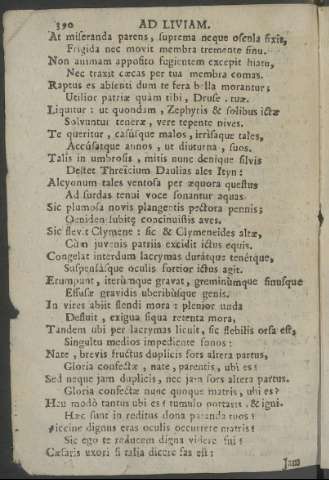 390 AD LIVIAM.
At miseranda parens, suprema neque oscula fixit,
Frigida nec movit membra tremente sinu.
Non animam apposito fugientem excepit hiatu,
Nec traxit cæcas per tua membra comas.
Raptus es absenti dum te fera bella morantur;
Utilior patriæ quàm tibi, Druse, tuæ.
Liquitur: ut quondam, Zephyris & solibus ictæ
Solvuntur teneræ, vere tepente nives.
Te queritur, casúsque malos, irrisaque tales,
Accúsatque annos, ut diuturna, suos.
Talis in umbrosis, mitis nunc denique silvis
Deflet Threicium Daulias ales Ityn:
Alcyonum tales ventosa per æquora questus
Ad surdas tenui voce sonantur aquas.
Sic plumosa novis plangentis pectora pennis;
Oeniden subitę concinuistis aves.
Sic flevit Clymene: sic & Clymeneides altæ,
Cùm juvenis patriis excidit ictus equis.
Congelat interdum lacrymas durátque tenétque,
Suspensásque oculis fortior ictus agit.
Erumpunt, iterùmque gravat, gremiúmque sinusque
Effusæ gravidis uberibúsque genis.
In vires abiit flendi mora: plenior unda
Defluit, exigua siqua retenta mora,
Tandem ubi per lacrymas licuit, sic flebilis orsa est,
Singultu medios impediente sonos:
Nate, brevis fructus duplicis sors altera partus,
Gloria confectæ, nate, parentis, ubi es?
Sed neque jam duplicis, nec jam sors altera partus.
Gloria confectæ nunc quoque matris, ubi es?
Heu modò tantus ubi es? tumulo portaris, & igni.
Hæc sunt in reditus dona paranda tuos?
Siccine dignus eras oculis occurrere matris?
Sic ego te reducem digna videre fui?
Cæsaris uxori si talia dicere fas est:
Jam